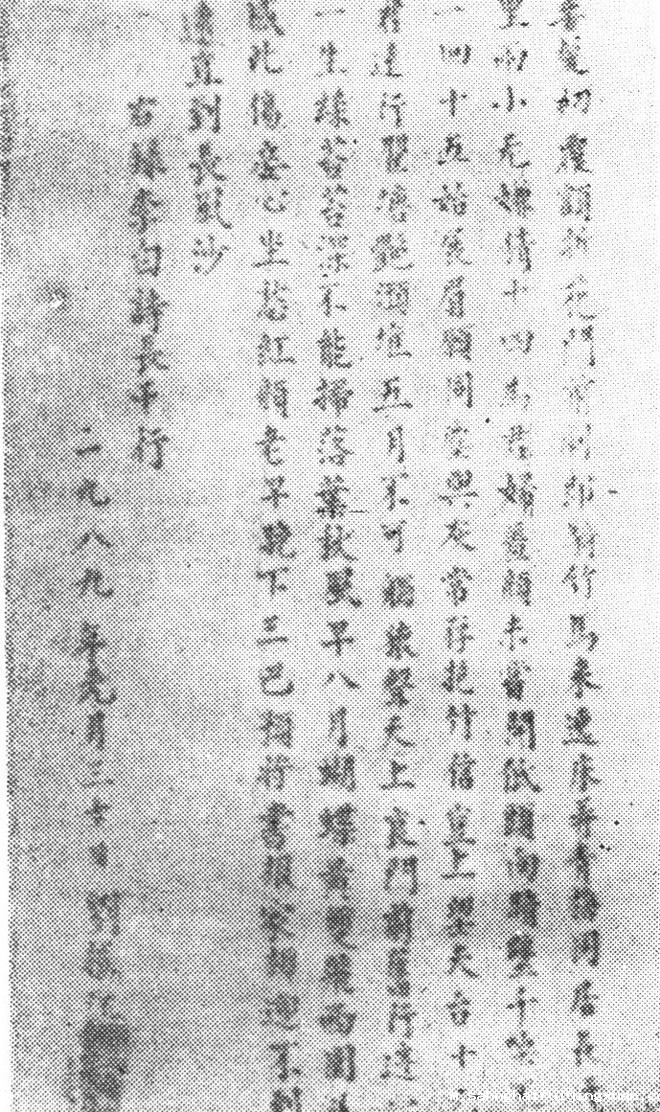 妾髮初覆額折花門前劇郎騎竹馬來遶床弄青梅同居長干
里兩小无嫌猜十四為君婦羞顏未嘗開低頭向暗壁千喚不
一回十五始展眉願同塵與灰常存抱柱信豈上望夫台十六
君遠行瞿塘灩澦堆五月不可觸猿聲天上哀門前舊行迹
一生綠苔苔深不能掃落葉秋風早八月蝴蝶黃雙飛西園草
感此傷妾心坐愁紅顏老早晚下三巴預將書報家相迎不道
遠直到長風沙
右錄李白詩長干行
一九八九年元月三十日 劉